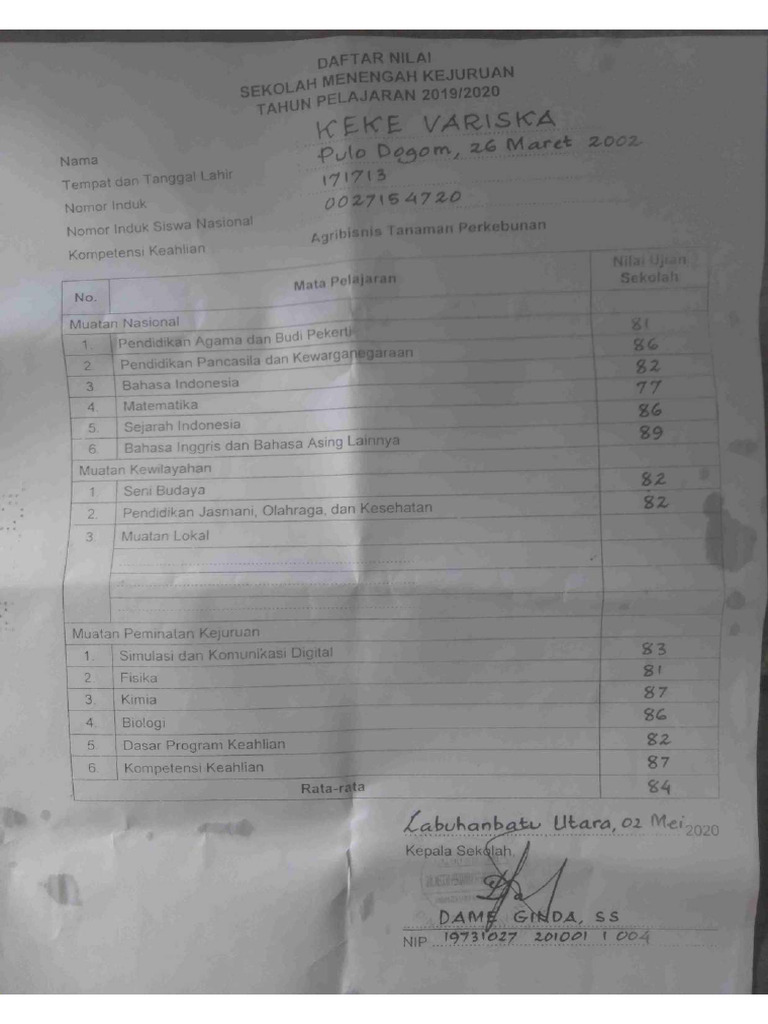 DAFTAR NILAI
SEKOLAH MENENGAH KEJURUAN
TAHUN PELAJARAN 2019/2020
Nama KEKE VARISKA
Tempat dan Tanggal Lahir Pulo Dogom, 26 Maret 2002
Nomor Induk 171713
Nomor Induk Siswa Nasional 0027154720
Kompetensi Keahlian Agribisnis Tanaman Perkebunan
No. Mata Pelajaran Nilai Ujian Sekolah
Muatan Nasional
1. Pendidikan Agama dan Budi Pekerti 81
2. Pendidikan Pancasila dan Kewarganegaraan 86
3 Bahasa Indonesia 82
4. Matematika 77
5. Sejarah Indonesia 86
6. Bahasa Inggris dan Bahasa Asing Lainnya 89
Muatan Kewilayahan
1 Seni Budaya 82
2. Pendidikan Jasmani, Olahraga, dan Kesehatan 82
3. Muatan Lokal
Muatan Peminatan Kejuruan
1. Simulasi dan Komunikasi Digital 83
2. Fisika 81
3. Kimia 87
4. Biologi 86
5. Dasar Program Keahlian 82
6. Kompetensi Keahlian 87
Rata-rata 84
Labuhanbatu Utara, 02 Mei 2020
Kepala Sekolah,
DAME GINDA, SS
NIP 19731027 201001 1 004